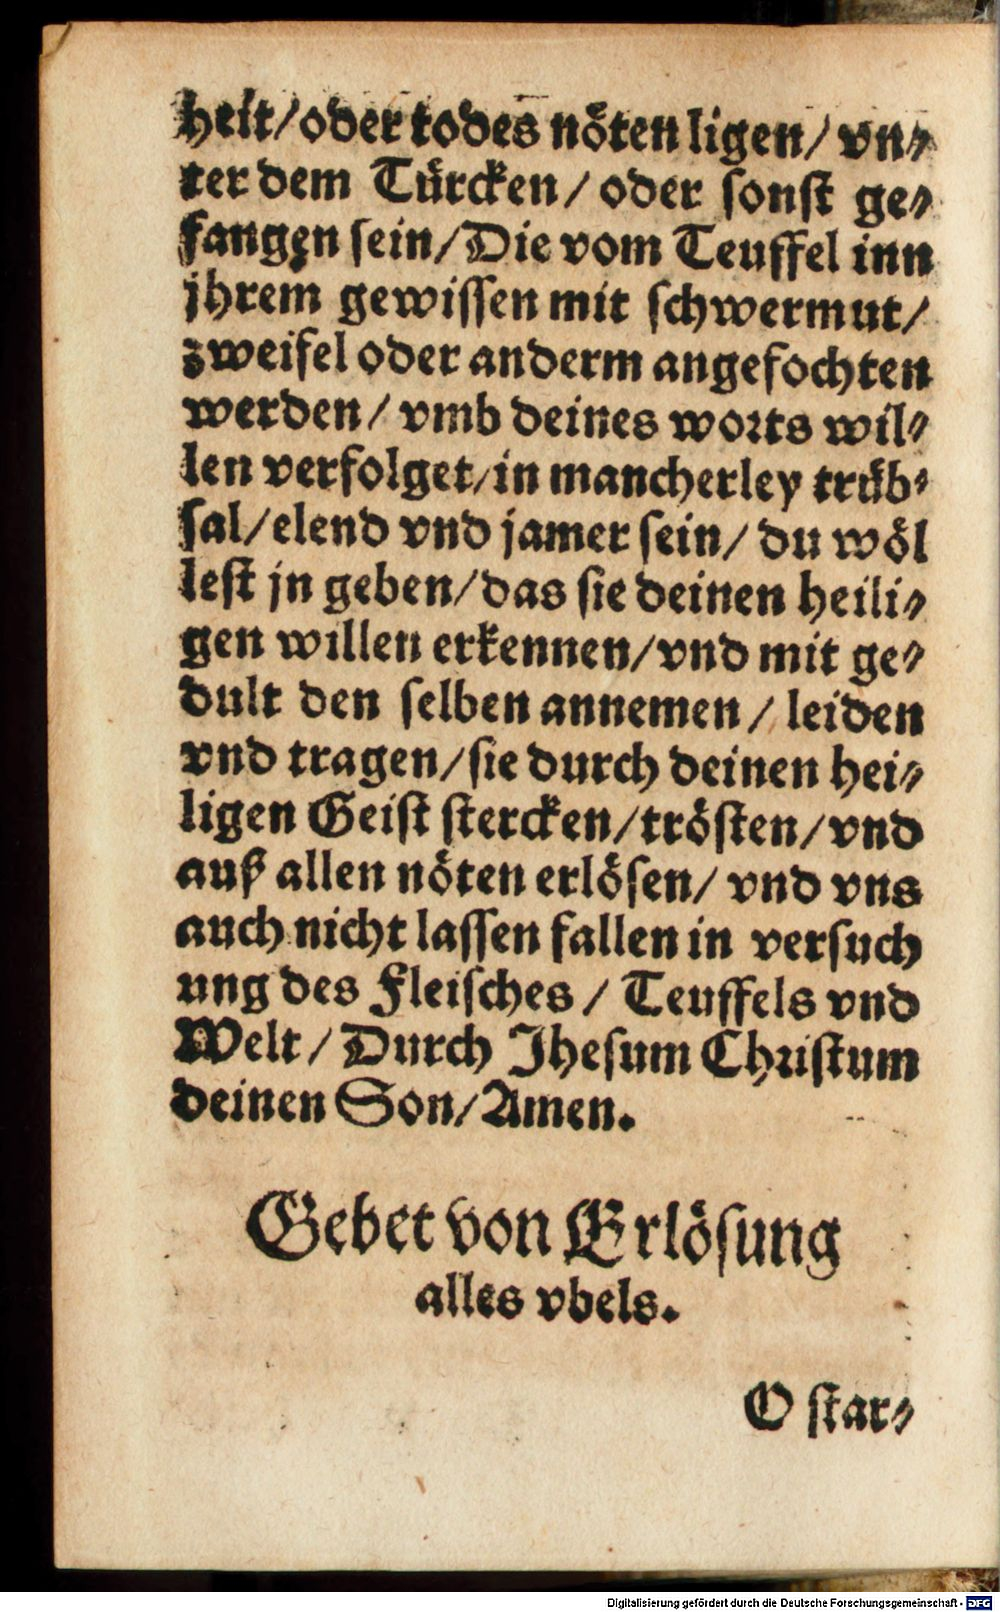 heit/oder todes nöten ligen/ vn⸗
ter dem Türcken/ oder sonst ge⸗
fangen sein/Die vom Teuffel inn
jhrem gewissen mit schwermut/
zweifel oder anderm angefochten
werden/ vmb deines worts wil⸗
len verfolget/in mancherley trüb⸗
sal/elend vnd jamer sein/ du wöl
lest jn geben/das sie deinen heili⸗
gen willen erkennen/vnd mit ge⸗
dult den selben annemen/ leiden
vnd tragen/sie durch deinen hei⸗
ligen Geist stercken/trösten/vnd
auß allen nöten erlösen/ vnd vns
auch nicht lassen fallen in versuch
ung des Fleisches/ Teuffels vnd
Welt/ Durch Jhesum Christum
deinen Son/Amen.
Gebet von Erlösung
alles vbels.
O star⸗
Digitalisierung gefördert durch die Deutsche Forschungsgemeinschaft - DFG